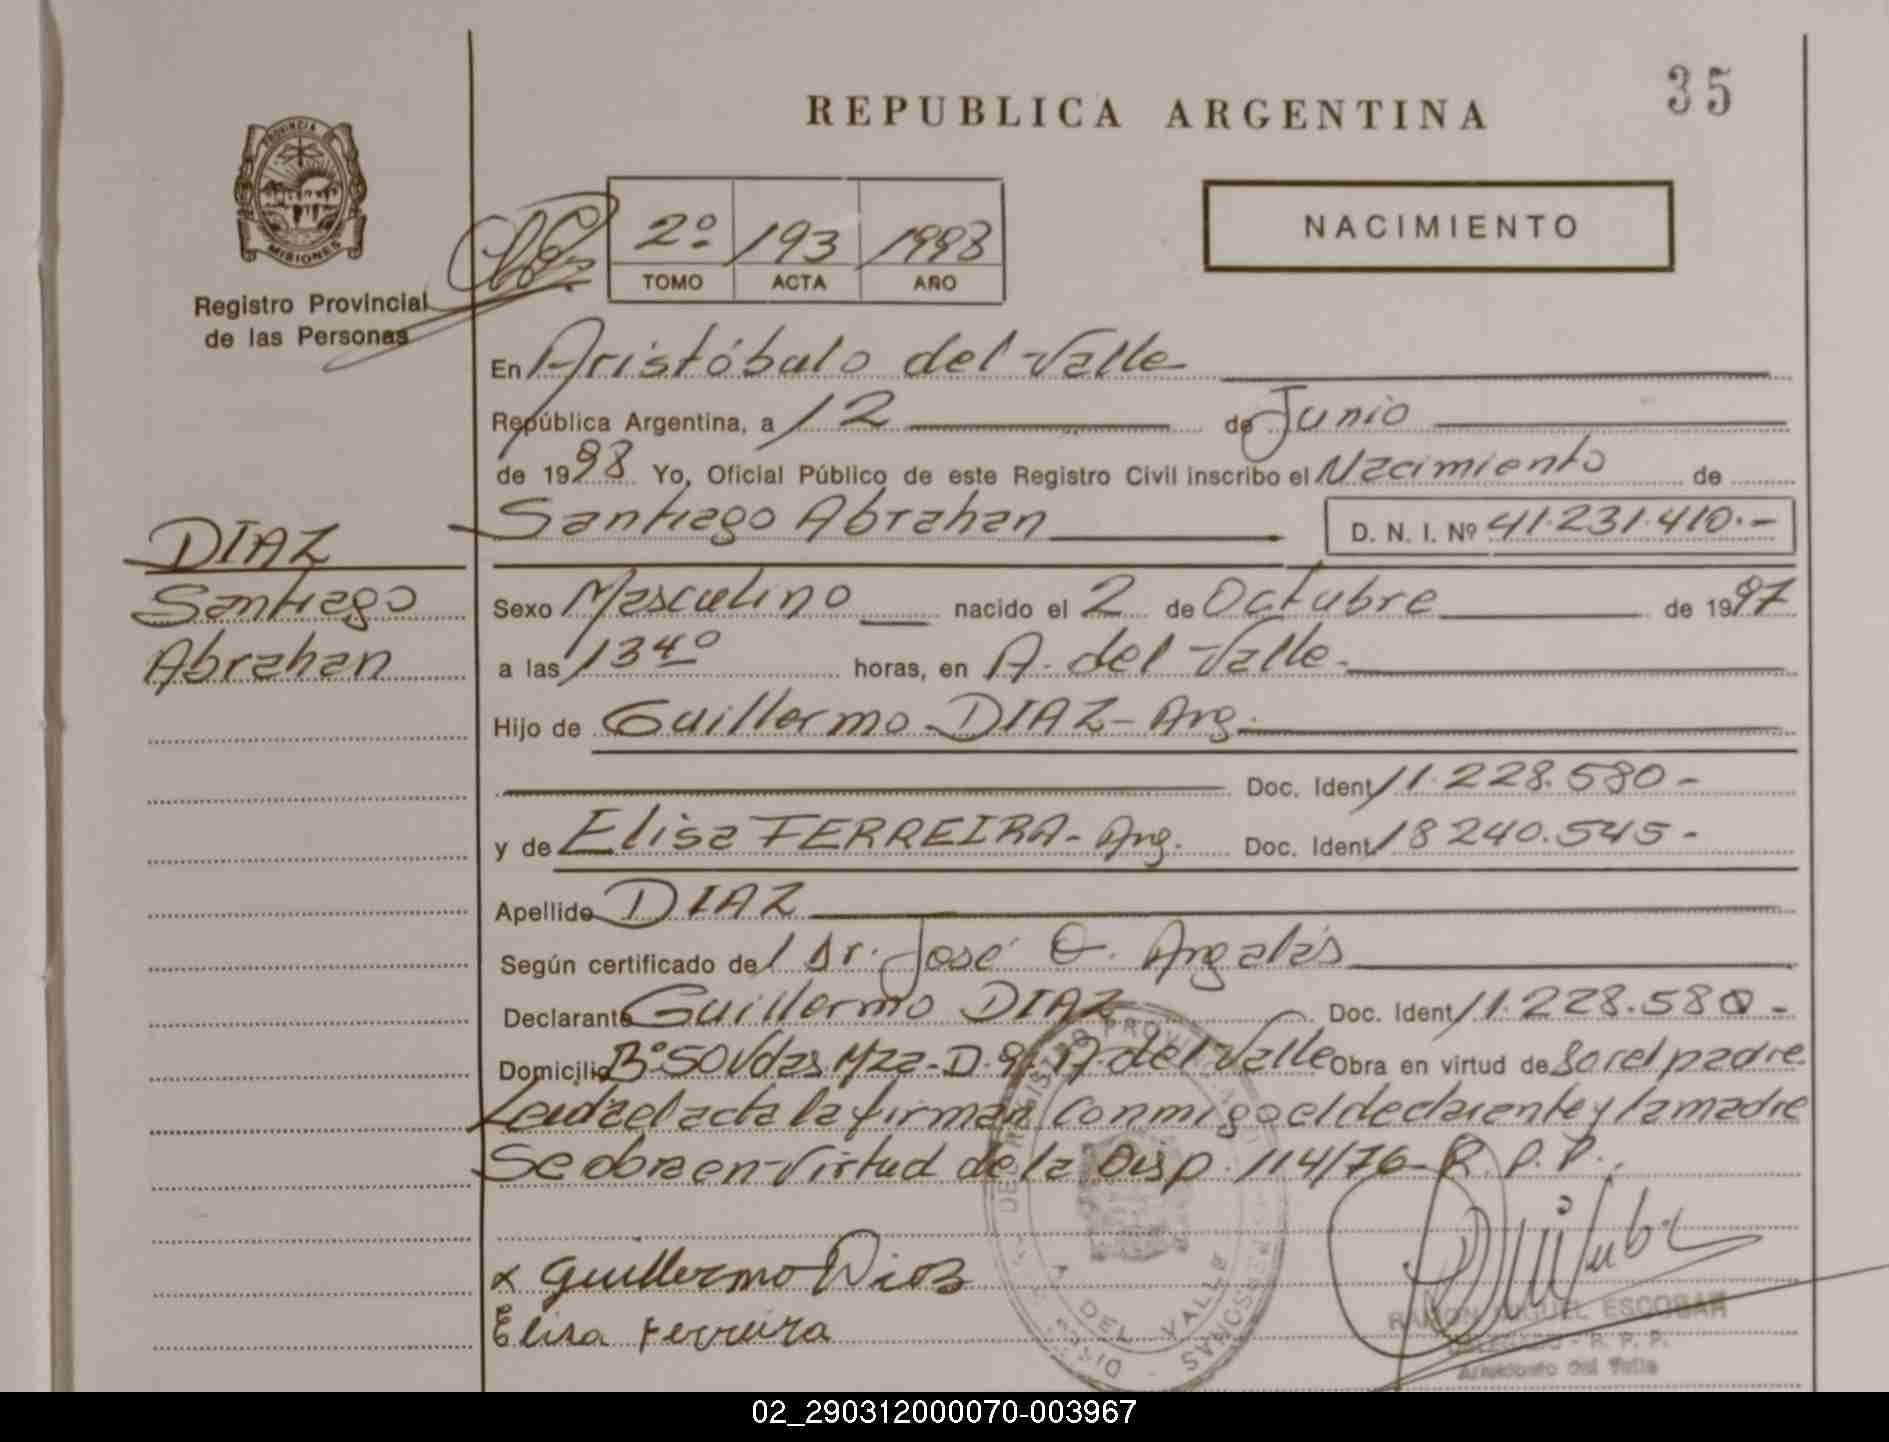 35
REPUBLICA ARGENTINA
PROVINCIA
MISIONES
Registro Provincial
de las Personas
2º 193 1998
TOMO ACTA AÑO
NACIMIENTO
En Aristóbulo del Valle
República Argentina, a 12 de Junio
de 1998 Yo, Oficial Público de este Registro Civil inscribo el Nacimiento de
Santiago Abrahan D. N. I. Nº 41.231.410.-
DIAZ
Santiago
Abrahan
Sexo Masculino nacido el 2 de Octubre de 1997
a las 13 4º horas, en A. del Valle.
Hijo de Guillermo DIAZ - Arg.
Doc. Ident 11.228.580-
y de Elisa FERREIRA - Arg. Doc. Ident. 18240.545-
Apellido DIAZ
Según certificado del Dr. José O. Argalás
Declarante Guillermo DIAZ Doc. Ident 11.228.580-
Domicilio Bº 50 Vdas Mza-D. 9. A. del Valle Obra en virtud de Ser el padre
Leída el acta la firman conmigo el declarante y la madre
Se obra en virtud de la Disp. 114/76 - R. P. P.
x Guillermo Diaz
Elisa Ferreira
A DEL VALLE
RAMON MIGUEL ESCOBAR
DELEGADO - R. P. P.
Aristóbulo del Valle
02_290312000070-003967